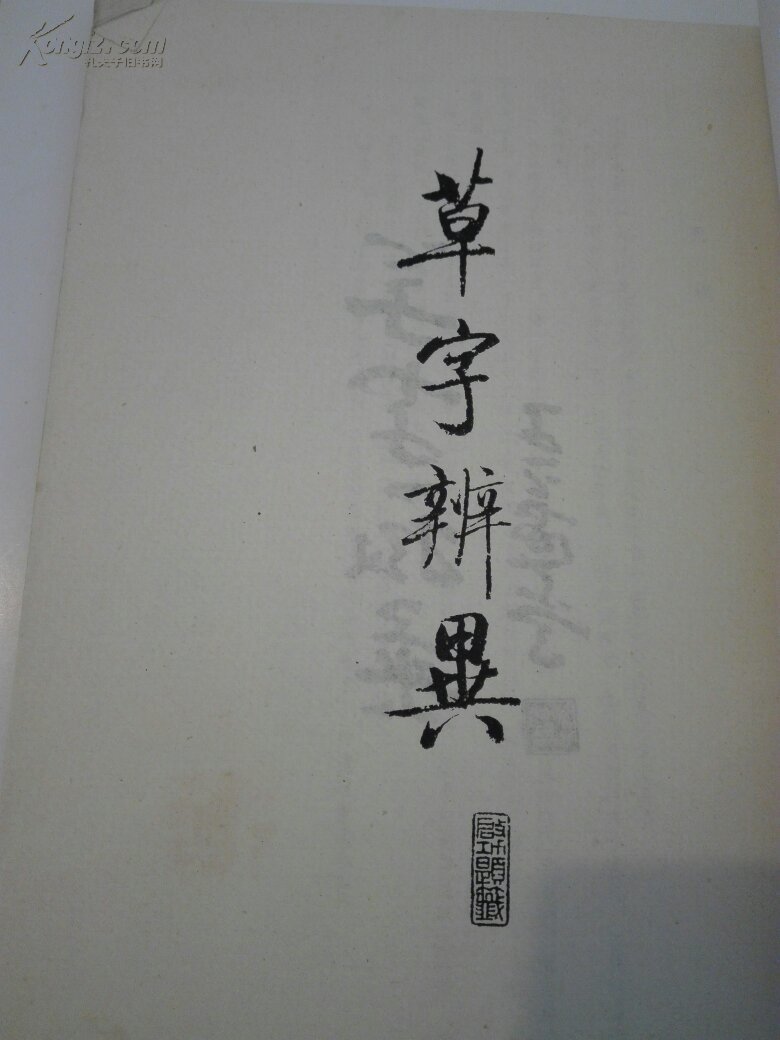 Kongfz.com
孔夫子旧书网
草字辨異
啟功題籤